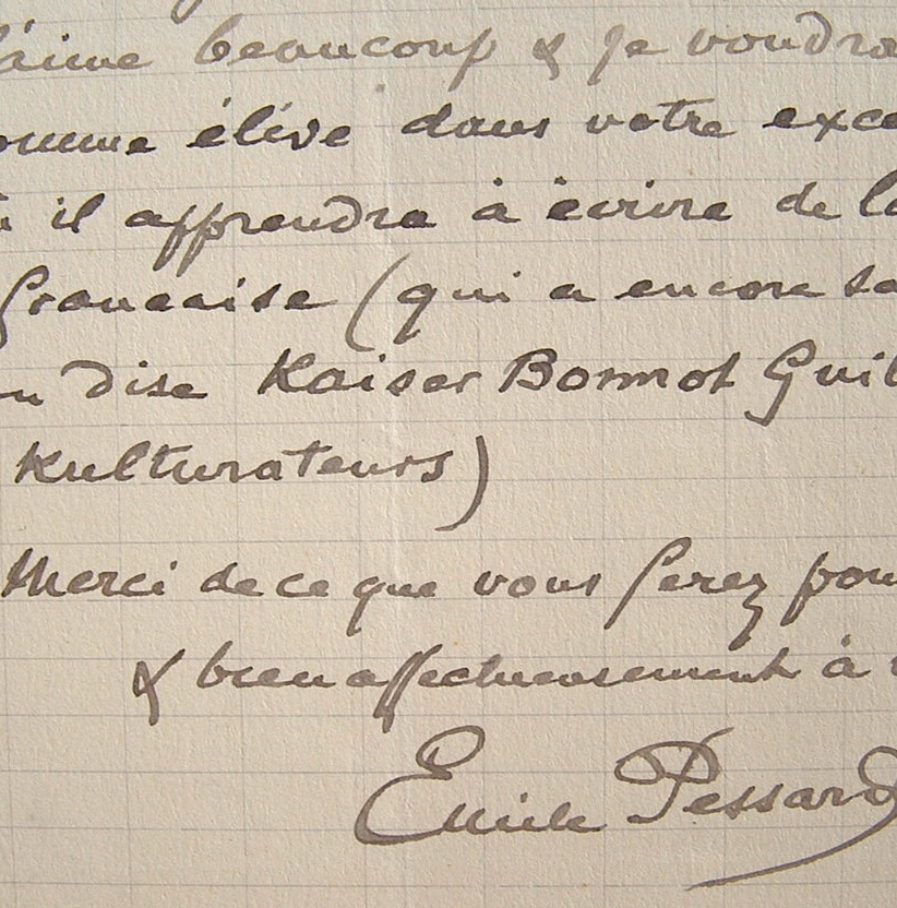 l'aime beaucoup & je voudra
omme élève dans votre exce
il apprendra à écrire de la
française (qui a encore sa
dise Kaiser Bonnot Guil
Kulturateurs)
Merci de ce que vous ferez pour
& bien affectueusement à
Emile Pessard